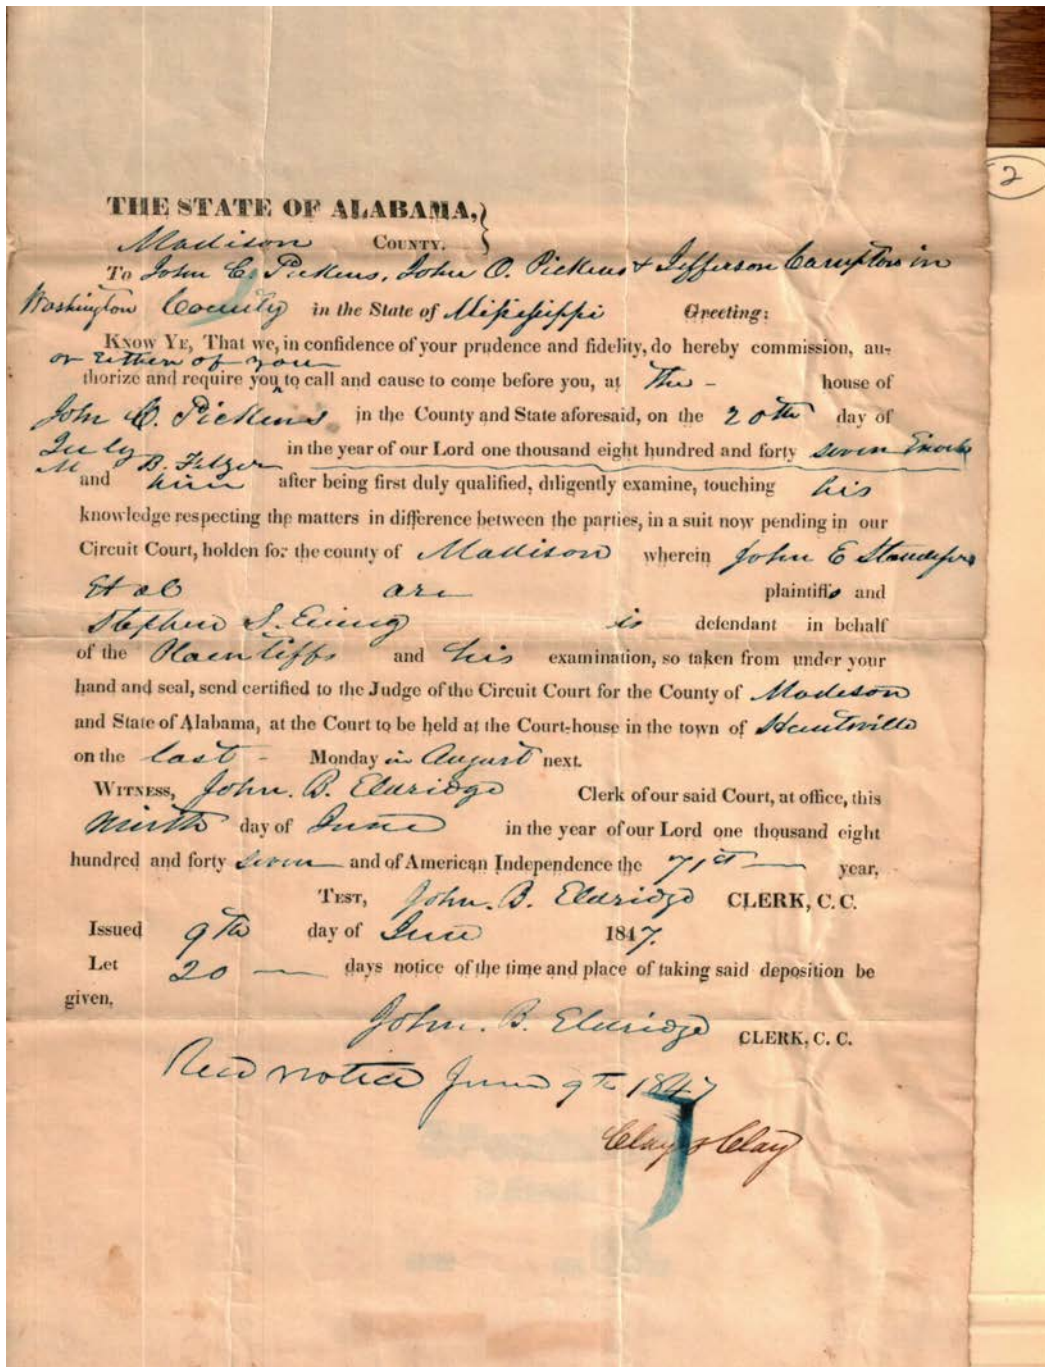 2
THE STATE OF ALABAMA,
Madison COUNTY.
To John C. Pickens, John O. Pickens & Jefferson Compton in
Washington County in the State of Missippi Greeting:
KNOW YE, That we, in confidence of your prudence and fidelity, do hereby commission, au-
or Either of you
thorize and require you to call and cause to come before you, at The - house of
John C. Pickens in the County and State aforesaid, on the 20th day of
July in the year of our Lord one thousand eight hundred and forty seven Enoch
M B. Felzer
and him after being first duly qualified, diligently examine, touching his
knowledge respecting the matters in difference between the parties, in a suit now pending in our
Circuit Court, holden for the county of Madison wherein John E
Et al are plaintiffs and
Stephen S. Ewing is defendant in behalf
of the Plaintiffs and his examination, so taken from under your
hand and seal, send certified to the Judge of the Circuit Court for the County of Madison
and State of Alabama, at the Court to be held at the Court-house in the town of Huntsville
on the last - Monday in August next.
WITNESS, John. B. Eldridge Clerk of our said Court, at office, this
Ninth day of June in the year of our Lord one thousand eight
hundred and forty seven and of American Independence the 71st year,
TEST, John. B. Eldridge CLERK, C. C.
Issued 9th day of June 1847.
Let 20 days notice of the time and place of taking said deposition be
given,
John. B. Eldridge CLERK, C. C.
Recd notice June 9th 1847
Clay & Clay